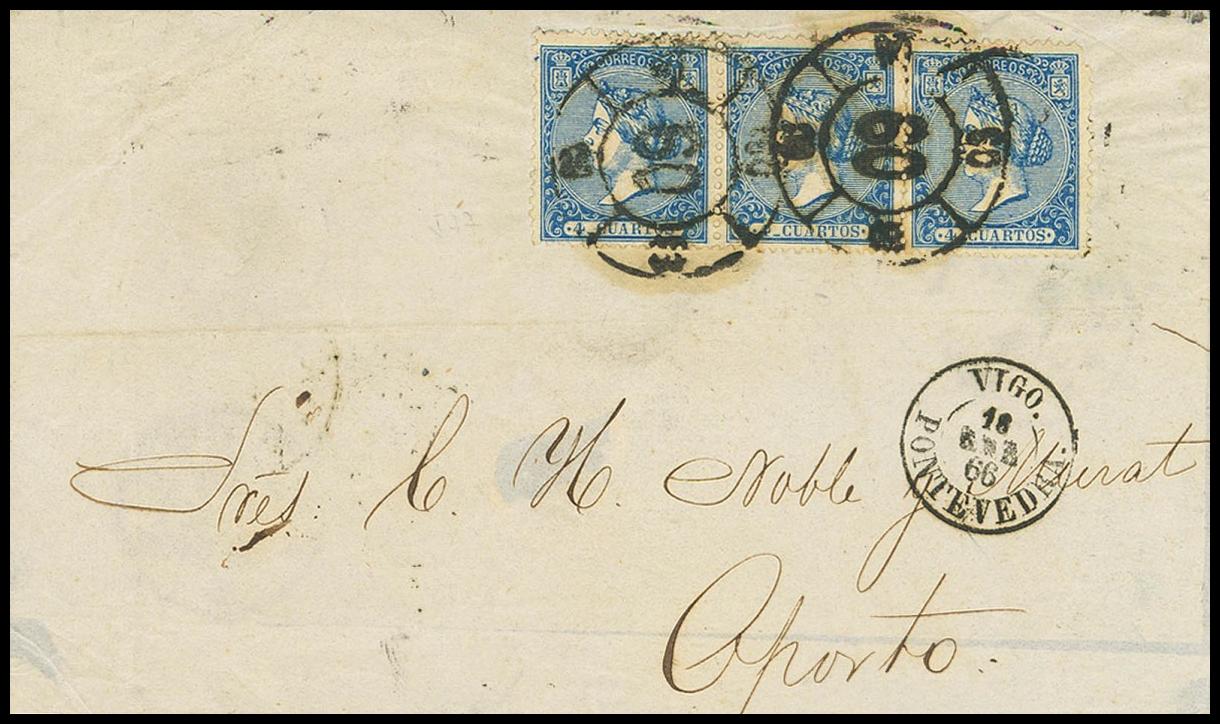 CORREOS CORREOS CORREOS
60 60
4 CUARTOS· 4 CUARTOS· ·4 CUARTOS·
VIGO.
18
ENE
66
PONTEVEDRA.
Srēs. C. N. Noble y Murat
Oporto.